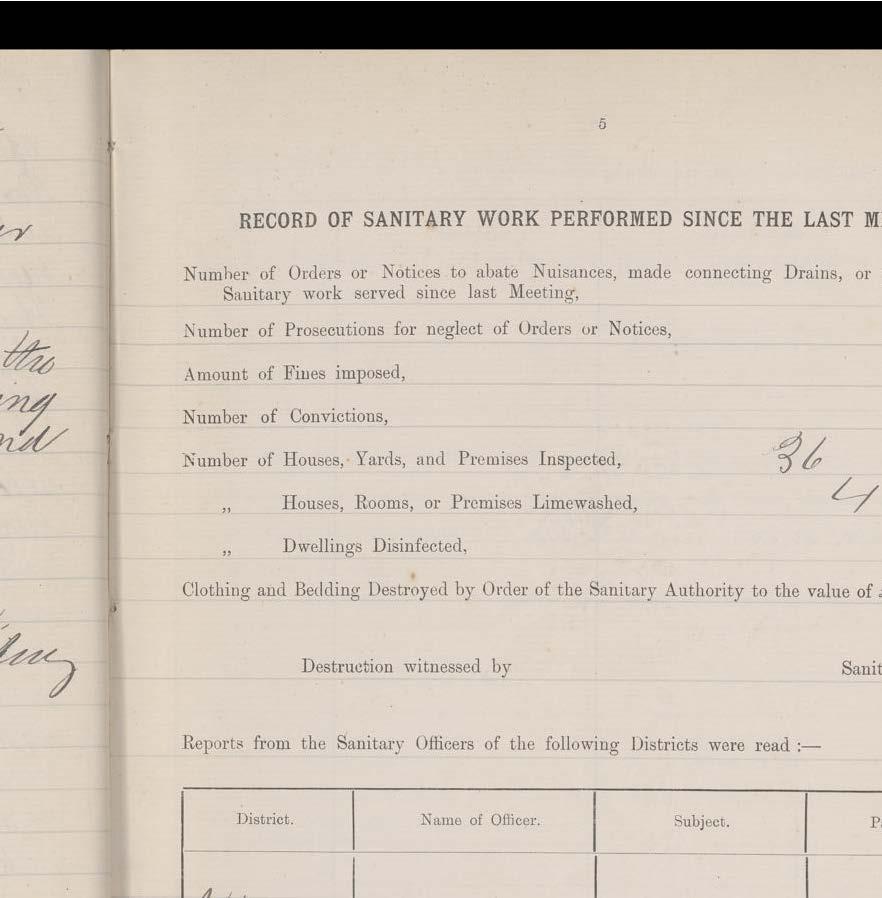 5
RECORD OF SANITARY WORK PERFORMED SINCE THE LAST M
Number of Orders or Notices to abate Nuisances, made connecting Drains, or
Sanitary work served since last Meeting,
Number of Prosecutions for neglect of Orders or Notices,
Amount of Fines imposed,
Number of Convictions,
Number of Houses, Yards, and Premises Inspected, 36
„ Houses, Rooms, or Premises Limewashed, 4
„ Dwellings Disinfected,
Clothing and Bedding Destroyed by Order of the Sanitary Authority to the value of
Destruction witnessed by Sanit
Reports from the Sanitary Officers of the following Districts were read :—
District. Name of Officer. Subject. Pa